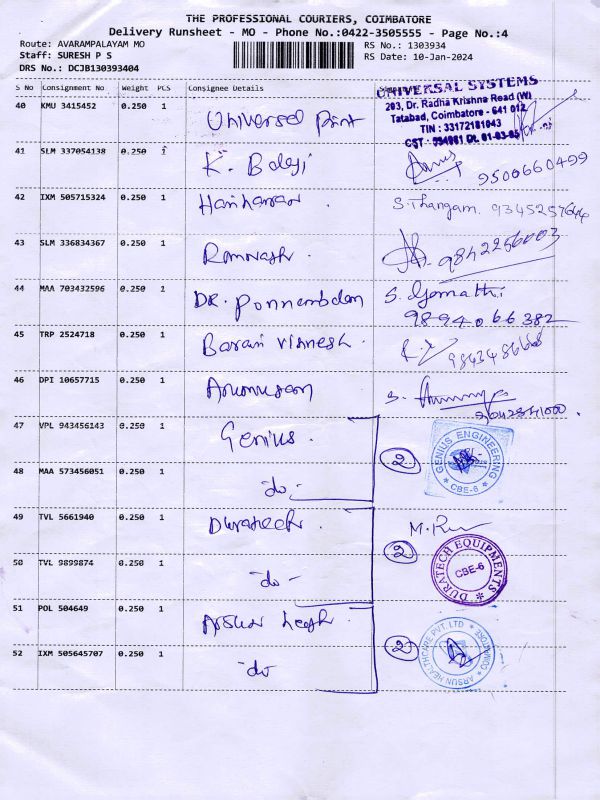 THE PROFESSIONAL COURIERS, COIMBATORE
Delivery Runsheet - MO - Phone No.:0422-3505555 - Page No.:4
Route: AVARAMPALAYAM MO
Staff: SURESH P S
DRS No.: DCJB130393404
RS No.: 1303934
RS Date: 10-Jan-2024
S No Consignment No Weight PCS Consignee Details
UNIVERSAL SYSTEMS
293, Dr. Radha Krishna Road (W)
Tatabad, Coimbatore - 641 012
TIN : 33172181043
40 KMU 3415452 0.250 1 Universal Print
41 SLM 337054138 0.250 1 K. Balaji 9500660499
42 IXM 505715324 0.250 1 Hariharan S. Thangam.
43 SLM 336834367 0.250 1 Ramnash. 9842256003
44 MAA 703432596 0.250 1 DR. Ponnembalam S. Gomathi
9894066382
45 TRP 2524718 0.250 1 Baran Vishnesh.
46 DPI 10657715 0.250 1
47 VPL 943456143 0.250 1 Genius. 2 GENIUS ENGINEERING * CBE-6 *
48 MAA 573456051 0.250 1 -do-
49 TVL 5661940 0.250 1 Duratech 2
50 TVL 9899874 0.250 1 -do- DURATECH EQUIPMENTS * CBE-6
51 POL 504649 0.250 1 2
52 IXM 505645707 0.250 1 -do ARSUN HEALTHCARE PVT. LTD * COIMBATORE